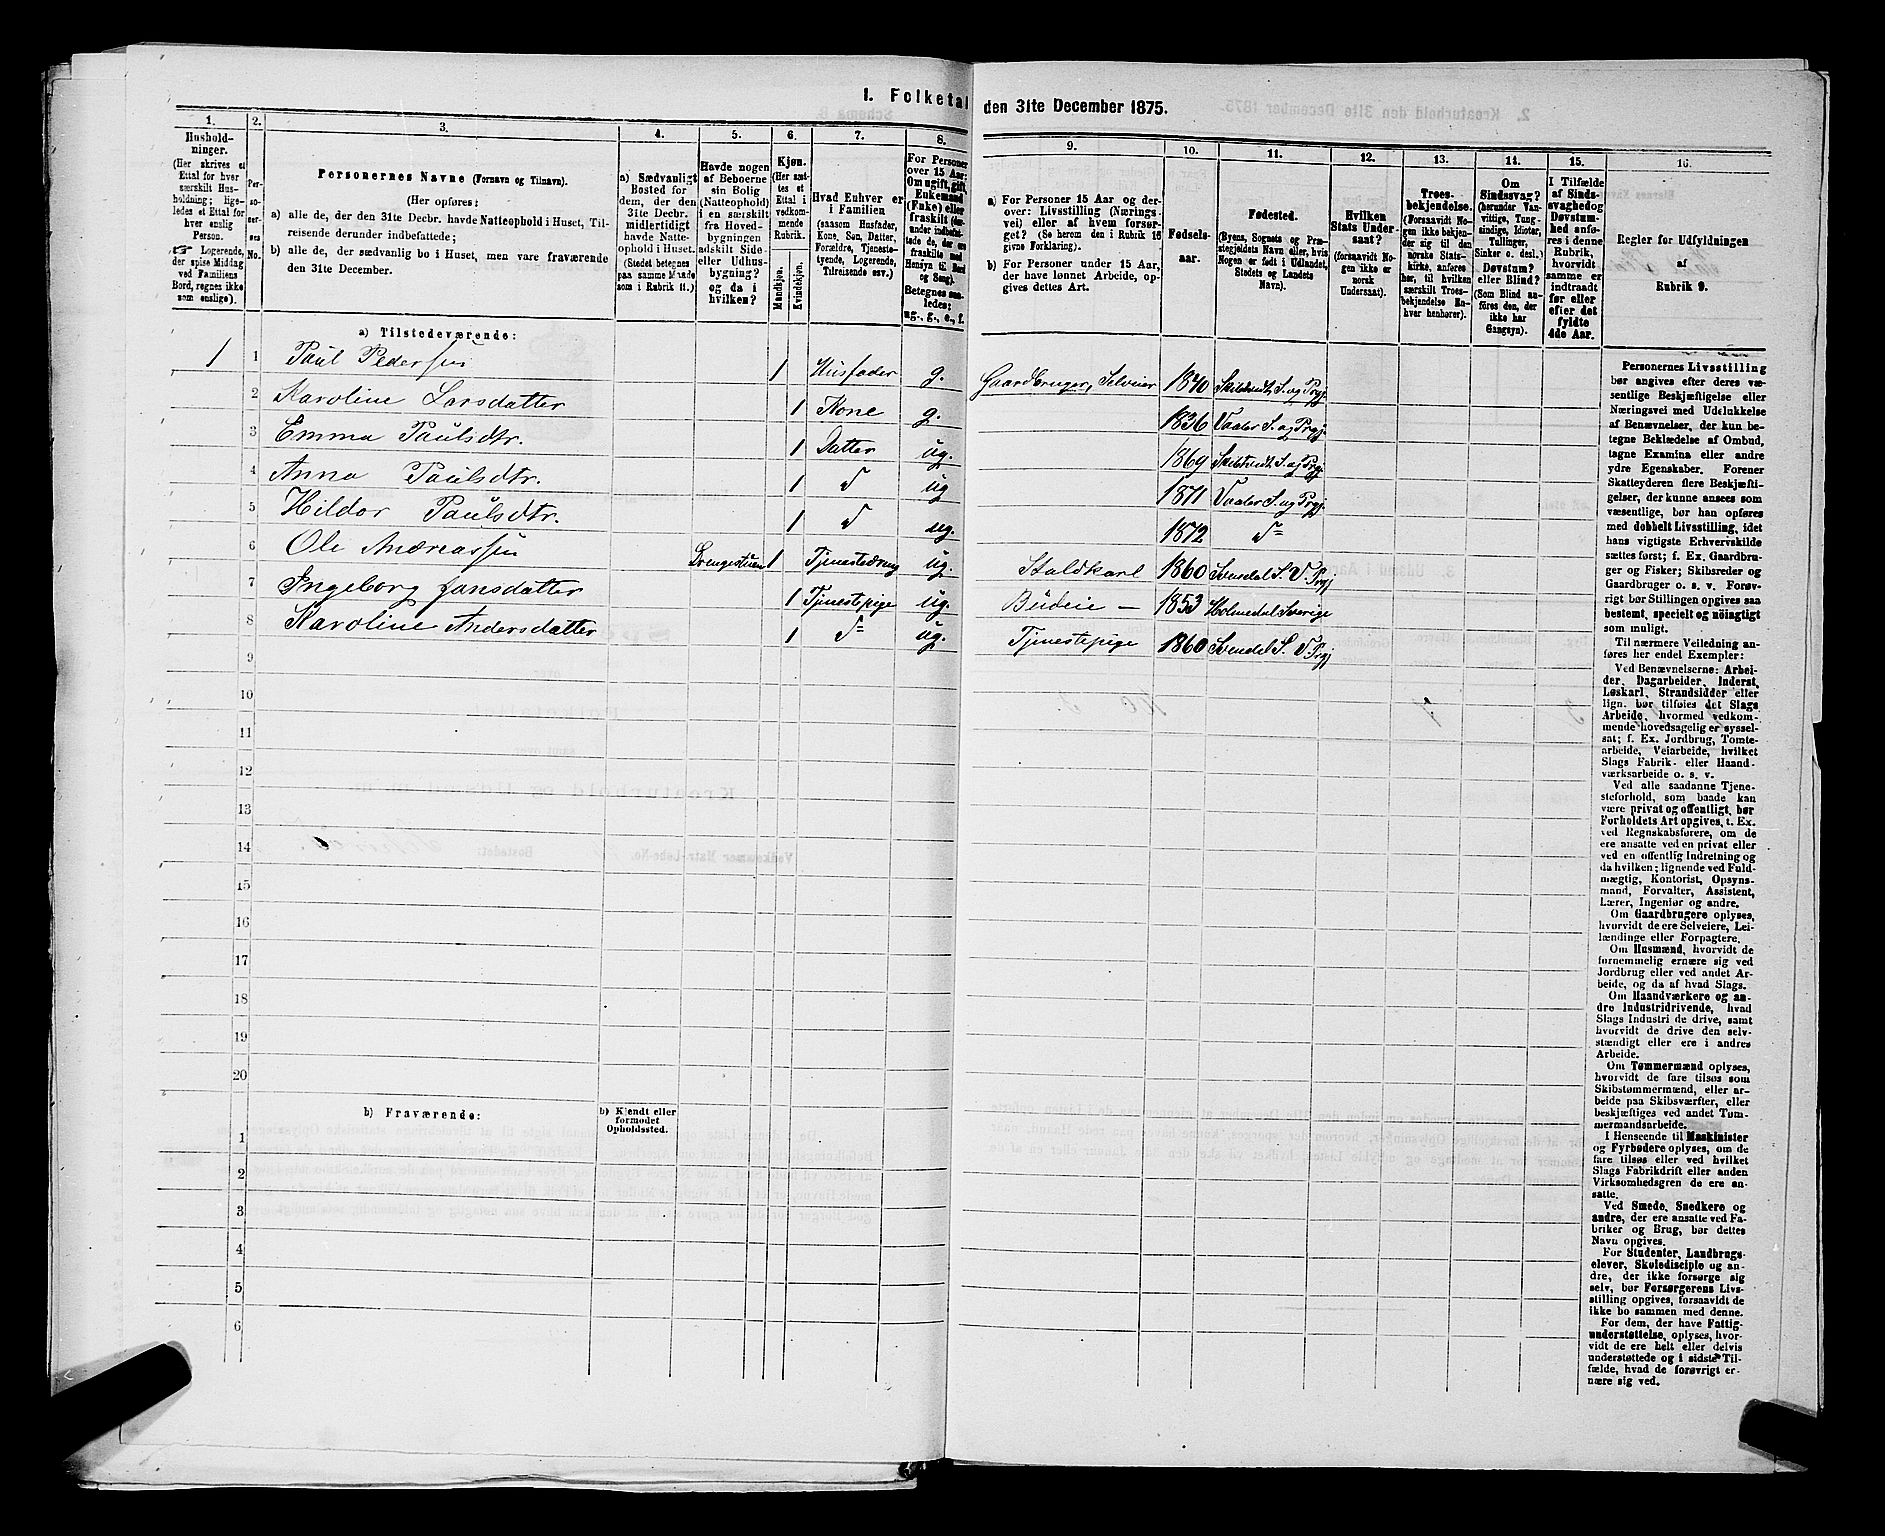 1. Folketal
den 31te December 1875.
1. 2. 3. 4. 5. 6. 7. 8. 9. 10. 11. 12. 13. 14. 15. 16.
Hushold-
ninger.
(Her skrives et
Ettal for hver
særskilt Hus-
holdning; lige-
ledes et Ettal for
hver enslig
Person.
Logerende,
der spise Middag
ved Familiens
Bord, regnes ikke
som enslige).
Per-
so-
ner-
nes
No.
Personernes Navne (Fornavn og Tilnavn).
(Her opføres:
a) alle de, der den 31te Decbr. havde Natteophold i Huset, Til-
reisende derunder indbefattede;
b) alle de, der sædvanlig bo i Huset, men vare fraværende
den 31te December.
a) Sædvanligt
Bosted for
dem, der den
31te Decbr.
midlertidigt
havde Natte-
ophold i Huset.
(Stedet betegnes
paa samme Maade
som i Rubrik 11.)
Havde nogen
af Beboerne
sin Bolig
(Natteophold)
i en særskilt
fra Hoved-
bygningen
adskilt Side-
eller Udhus-
bygning?
og da i
hvilken?
Kjøn.
(Her sæt-
tes et
Ettal i
vedkom-
mende
Rubrik.
Mandkjøn.
Kvindekjøn.
Hvad Enhver er
i Familien
(saasom Husfader,
Kone, Søn, Datter,
Forældre, Tjeneste-
tyende, Logerende,
Tilreisende osv.)
For Personer
over 15 Aar:
Om ugift, gift,
Enkemand
(Enke) eller
fraskilt
Betegnes saa-
ledes:
ug., g., e., f.
a) For Personer 15 Aar og der-
over: Livsstilling (Nærings-
vei) eller af hvem forsør-
get? (Se herom den i Rubrik 16
givne Forklaring).
b) For Personer under 15 Aar,
der have lønnet Arbeide, op-
gives dettes Art.
Fødsels-
aar.
Fødested.
(Byens, Sognets og Præ-
stegjeldets Navn eller, hvis
Nogen er født i Udlandet,
Stedets og Landets
Navn).
Hvilken
Stats Under-
saat?
(forsaavidt No-
gen ikke er
norsk
Undersaat).
Troes-
bekjendelse.
(Forsaavidt No-
gen ikke bekjen-
der sig til den
norske Stats-
kirke, anføres
her, til hvilken
særskilt Troes-
bekjendelse En-
hver henhører).
Om
Sindssvag?
(herunder Van-
vittige, Tung-
sindige, Idioter,
Tullinger,
Sinker o. desl.)
Døvstum?
eller Blind?
(Som Blind an-
føres den, der
ikke har
Gangsyn).
I Tilfælde
af Sinds-
svaghed og
Døvstum-
hed anfø-
res i denne
Rubrik,
hvorvidt
samme er
indtraadt
før eller
efter det
fyldte
4de Aar.
Regler for Udfyldningen
af
Rubrik 9.
a) Tilstedeværende:
1 1 Paul Pedersen 1 Husfader g. Gaardbruger, Selveier 1840 Skibtvedt S. og Prgj.
2 Karoline Larsdatter 1 Kone g. 1836 Vaaler S. og Prgj.
3 Emma Paulsdtr. 1 Datter ug. 1869 Skibtvedt S. og Prgj.
4 Anna Paulsdtr. 1 D ug 1871 Vaaler S. og Prgj.
5 Hildor Paulsdtr. 1 D ug. 1872 D=
6 Ole Andreassen Drengestuen 1 Tjenestedreng ug. Staldkarl 1860 Svendal S. V. Prgj
7 Ingeborg Jansdatter 1 Tjenestepige ug. Budeie — 1853 Holmedal Sverige
8 Karoline Andersdatter 1 D= ug. Tjenestepige 1860 Svendal S. V. Prgj
9
10
11
12
13
14
15
16
17
18
19
20
b) Fraværende:
b) Kjendt eller
formodet
Opholdssted.
1
2
3
4
5
6
Personernes Livsstilling
bør angives efter deres væ-
sentlige Beskjæftigelse eller
Næringsvei med Udelukkelse
af Benævnelser, der kun be-
tegne Beklædelse af Ombud,
tagne Examina eller andre
ydre Egenskaber. Forener
Skatteyderen flere Beskjæfti-
gelser, der kunne ansees som
væsentlige, bør han opføres
med dobbelt Livsstilling, idet
hans vigtigste Erhvervskilde
sættes først; f. Ex. Gaardbru-
ger og Fisker; Skibsreder og
Gaardbruger o. s. v. Forøv-
rigt bør Stillingen opgives saa
bestemt, specielt og nöiagtigt
som muligt.
Til nærmere Veiledning an-
føres her endel Exempler:
Ved Benævnelserne: Arbei-
der, Dagarbeider, Inderst,
Løskarl, Strandsidder eller
lign. bør tilføies det Slags
Arbeide, hvormed vedkom-
mende hovedsagelig er syssel-
sat; f. Ex. Jordbrug, Tomte-
arbeide, Veiarbeide, hvilket
Slags Fabrik- eller Haand-
værksarbeide o. s. v.
Ved alle saadanne Tjene-
steforhold, som baade kan
være privat og offentligt, bør
Forholdets Art opgives, t. Ex.
ved Regnskabsførere, om de
ere ansatte ved en privat eller
ved en offentlig Indretning og
da hvilken; lignende ved Fuld-
mægtig, Kontorist, Opsyns-
mand, Forvalter, Assistent,
Lærer, Ingeniør og andre.
Om Gaardbrugere oplyses,
hvorvidt de ere Selveiere, Lei-
lændinge eller Forpagtere.
Om Husmænd, hvorvidt de
fornemmelig ernære sig ved
Jordbrug eller ved andet Ar-
beide, og da af hvad Slags.
Om Haandværkere og an-
dre Industridrivende, hvad
Slags Industri de drive, samt
hvorvidt de drive den selv-
stændigt eller ere i andres
Arbeide.
Om Tømmermænd oplyses,
hvorvidt de fare tilsøs som
Skibstømmermænd, eller ar-
beide paa Skibsværfter, eller
beskjæftiges ved andet Tøm-
mermandsarbeide.
I Henseende til Maskinister
og Fyrbødere oplyses, om de
fare tilsøs eller ved hvilket
Slags Fabrikdrift eller anden
Virksomhedsgren de ere an-
satte.
Ved Smede, Snedkere og
andre, der ere ansatte ved Fa-
briker og Brug, bør dettes
Navn opgives.
For Studenter, Landbrugs-
elever, Skoledisciple og an-
dre, der ikke forsørge sig
selv, bør Forsørgerens Livs-
stilling opgives, forsaavidt de
ikke bo sammen med denne.
For dem, der have Fattig-
understøttelse, oplyses, hvor-
vidt de ere helt eller delvis
understøttede og i sidste Til-
fælde, hvad de forøvrigt er-
nære sig ved.